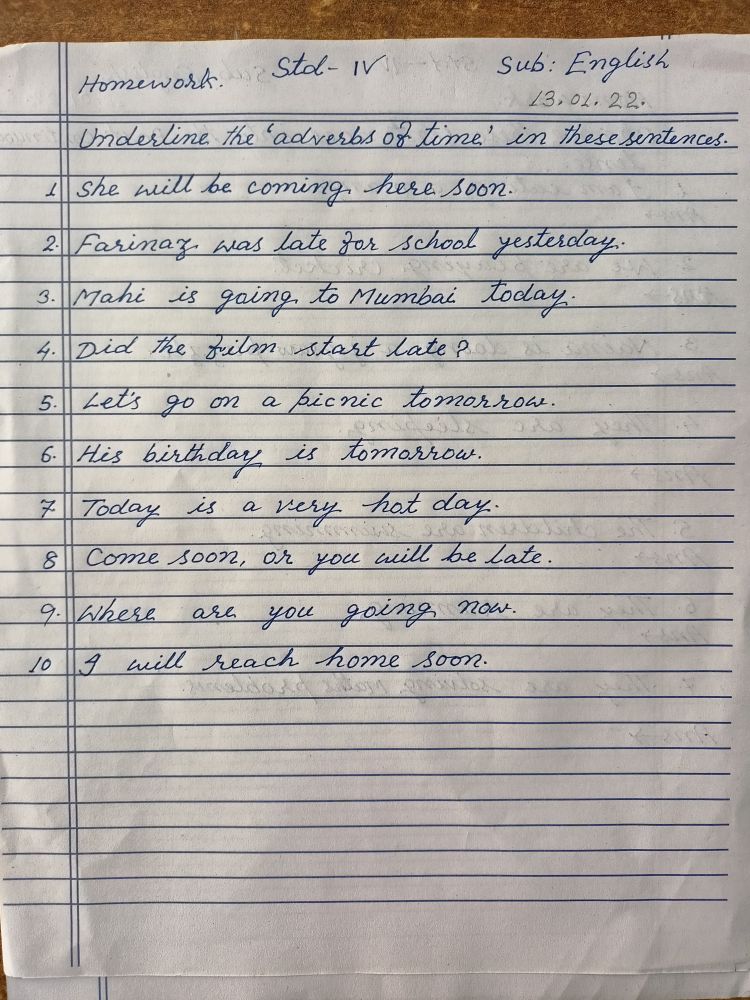 Homework. Std- IV Sub: English
13.01.22.
Underline the 'adverbs of time' in these sentences.
1 She will be coming here soon.
2. Farinaz was late for school yesterday.
3. Mahi is going to Mumbai today.
4. Did the film start late?
5. Let's go on a picnic tomorrow.
6. His birthday is tomorrow.
7 Today is a very hot day.
8 Come soon, or you will be late.
9. Where are you going now.
10 I will reach home soon.